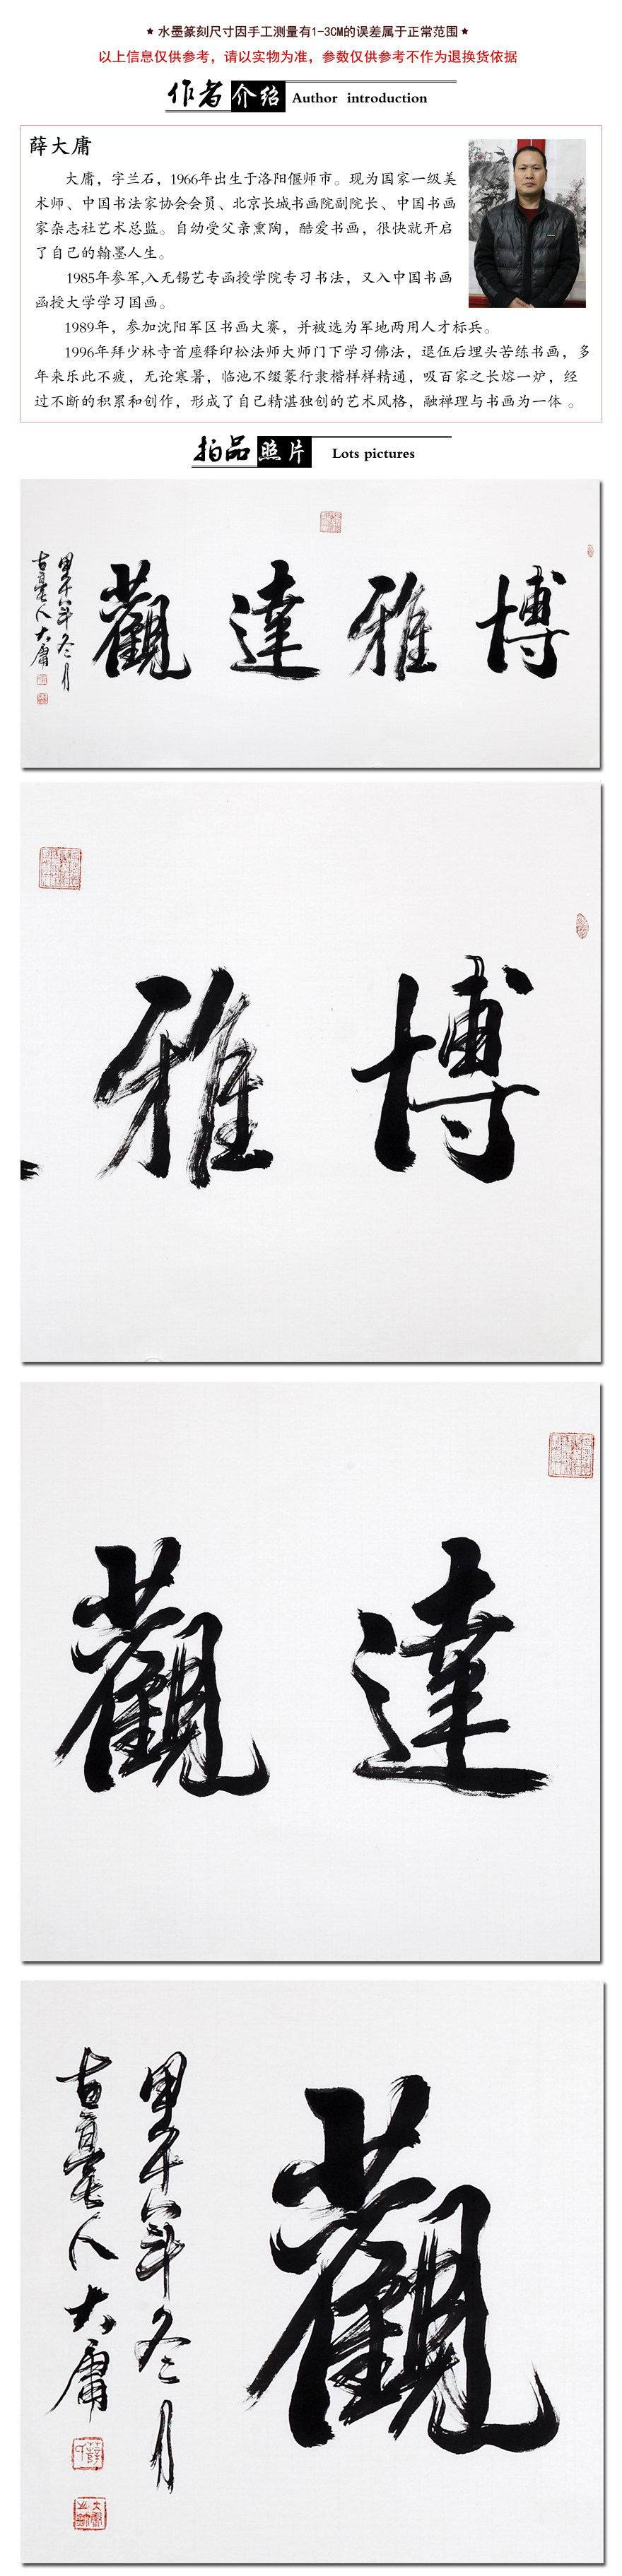 ★ 水墨篆刻尺寸因手工测量有1-3CM的误差属于正常范围 ★
以上信息仅供参考，请以实物为准，参数仅供参考不作为退换货依据
作者介绍 Author introduction
薛大庸
大庸，字兰石，1966年出生于洛阳偃师市。现为国家一级美
术师、中国书法家协会会员、北京长城书画院副院长、中国书画
家杂志社艺术总监。自幼受父亲熏陶，酷爱书画，很快就开启
了自己的翰墨人生。
1985年参军,入无锡艺专函授学院专习书法，又入中国书画
函授大学学习国画。
1989年，参加沈阳军区书画大赛，并被选为军地两用人才标兵。
1996年拜少林寺首座释印松法师大师门下学习佛法，退伍后埋头苦练书画，多
年来乐此不疲，无论寒暑，临池不缀篆行隶楷样样精通，吸百家之长熔一炉，经
过不断的积累和创作，形成了自己精湛独创的艺术风格，融禅理与书画为一体 。
拍品照片 Lots pictures
博雅達觀
甲午年冬月
古亳人大庸
博雅
達觀
觀
甲午年冬月
古亳人大庸